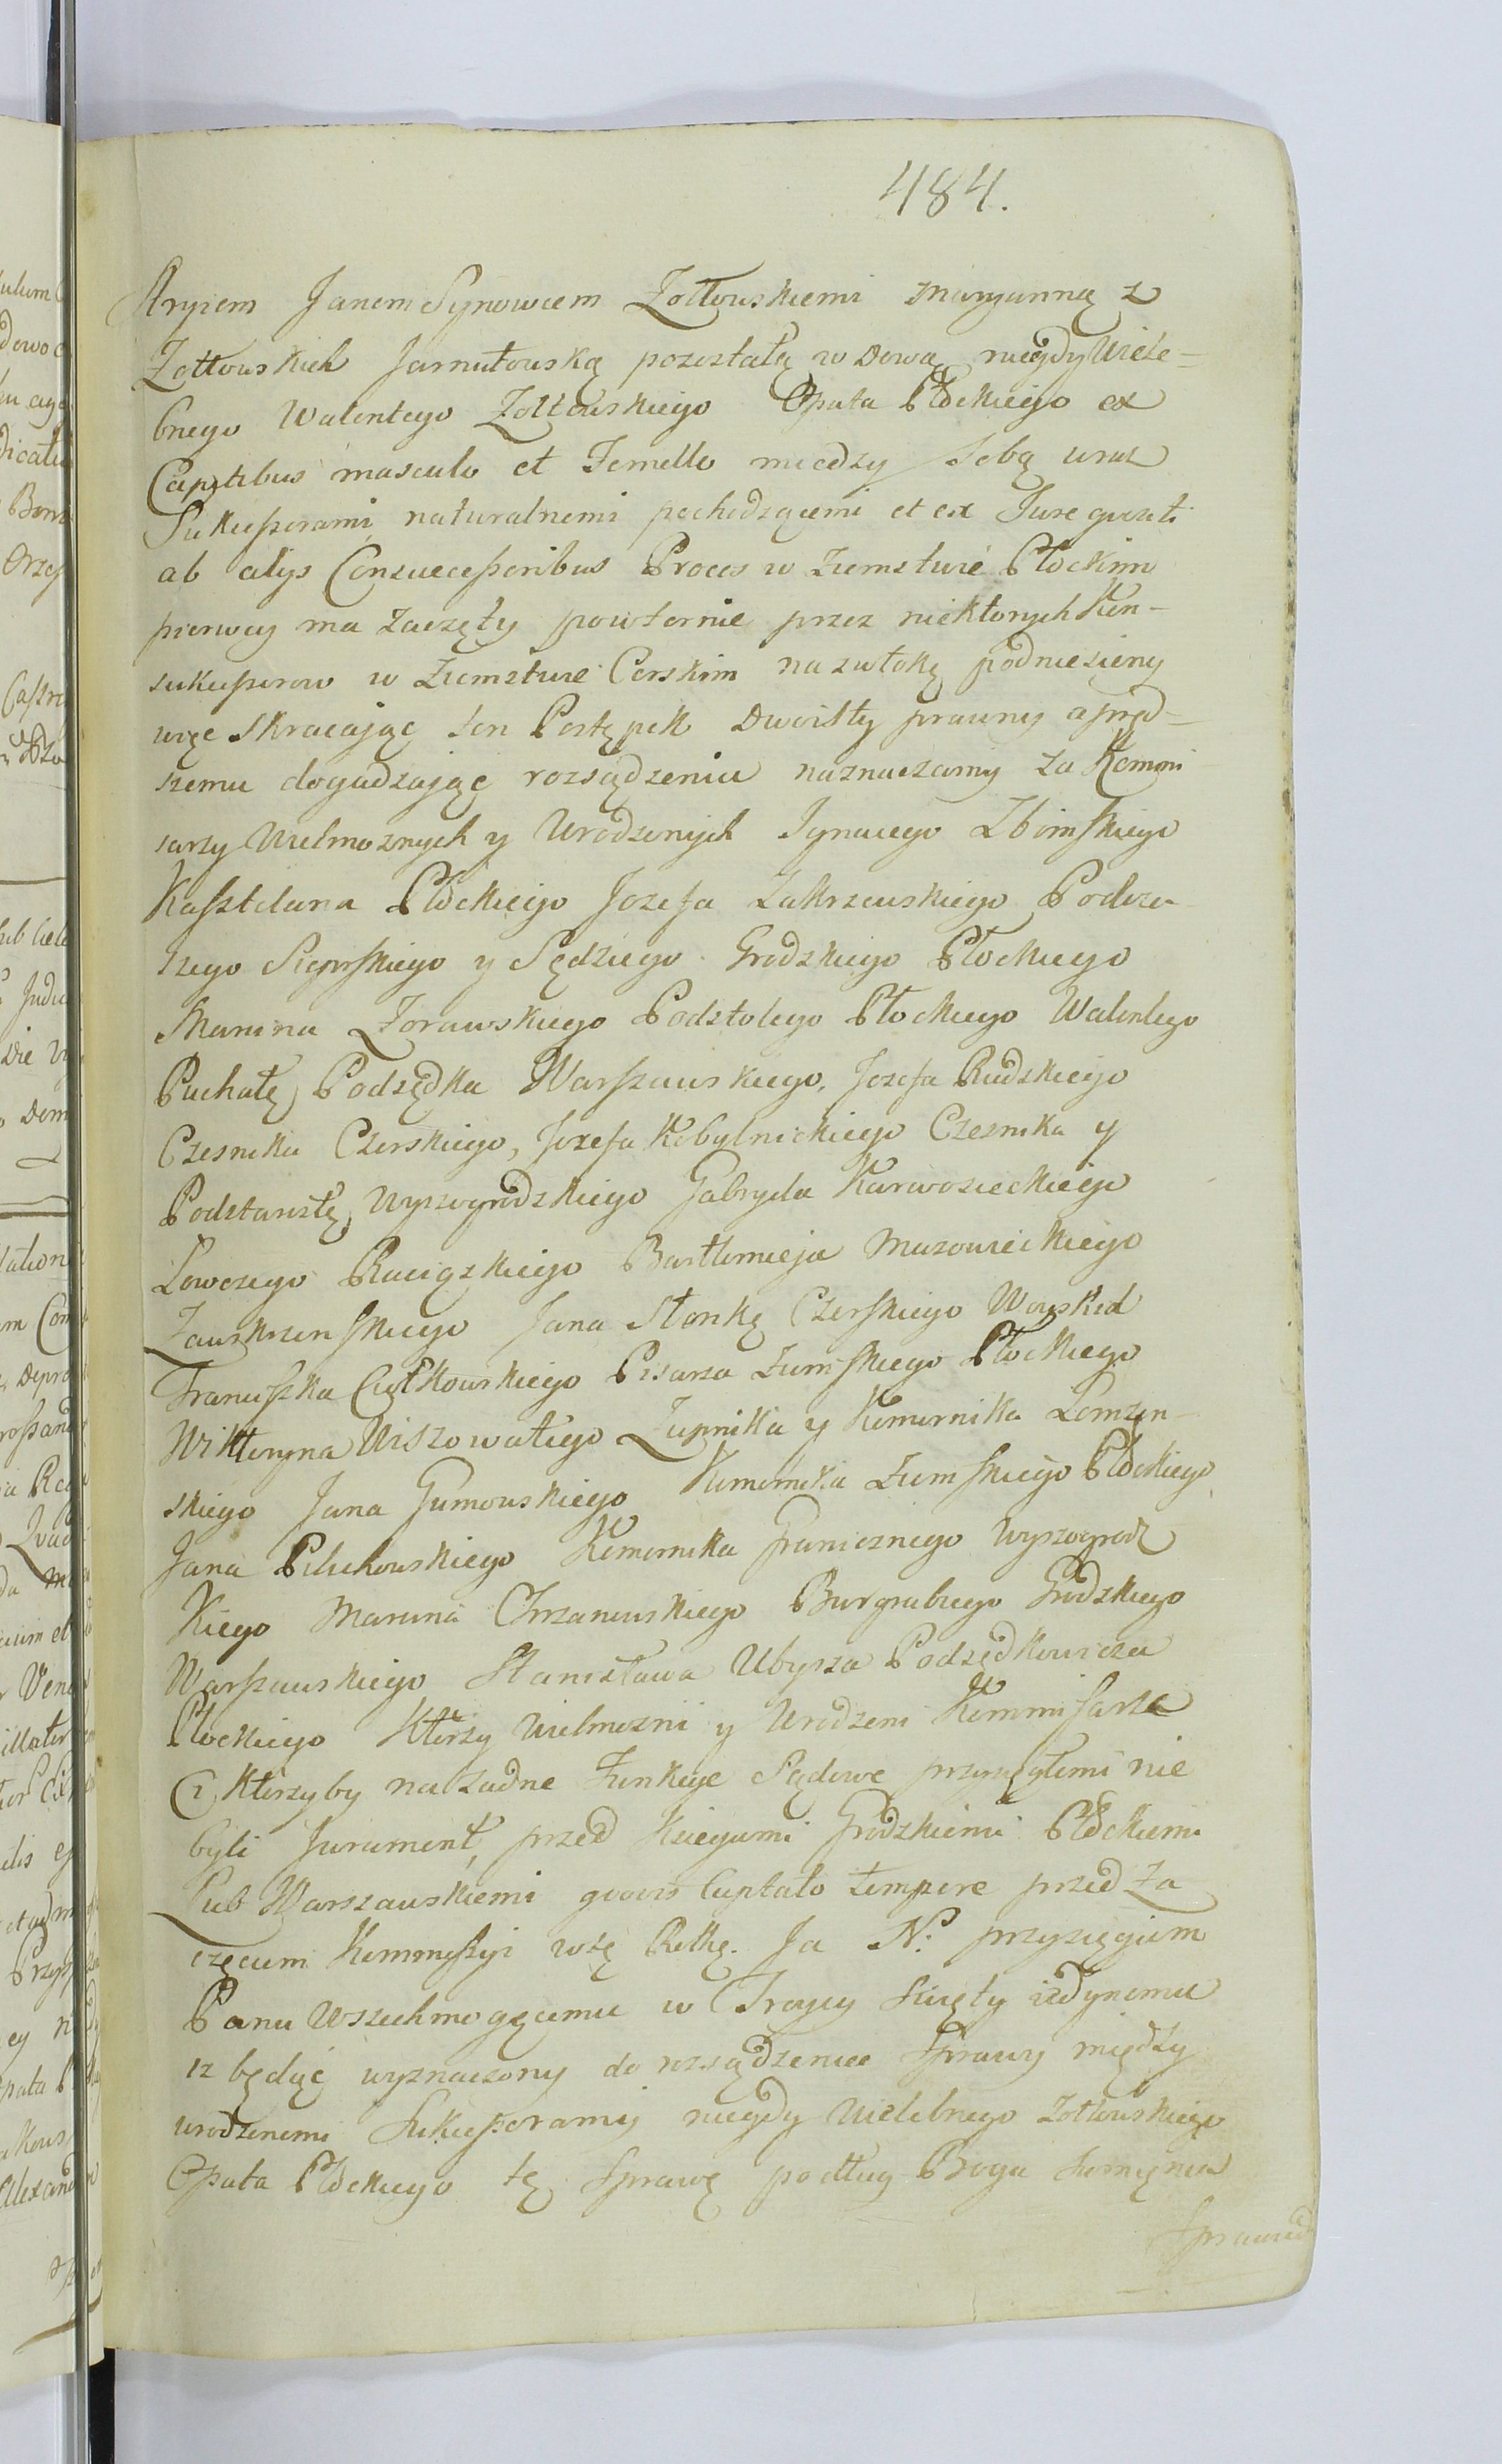 484.
Stryiem Janem Synowcem Zołtowskiemi Maryanną z
Zołtowskich Jarnutowską pozostałą wdową niegdy Wiele-
bnego Walentego Zołtowskiego Opata Płockiego ex
Capitibus masculo et Femello między Sobą wraz
Sukcessorami naturalnemi pochodzącemi et ex Jure quesiti
ab alijs Consuccessoribus Proces w Ziemstwie Płockim
pierwey ma zaczęty powtornie przez niektorych Kon-
sukcessorow w Ziemstwie Cerskim na zwłokę podniesieny
więc skracaiąc ten Postępek dwoisty prawny a pręd-
szemu dogadzaiąc rozsądzeniu naznaczamy za Kommi
sarzy Wielmoznych y Urodzonych Ignacego Zboinskiego
Kasztelana Płockiego Jozefa Zakrzewskiego Podcza
szego Sierpskiego y Sędziego Grodzkiego Płockiego
Marcina Zorawskiego Podstolego Płockiego Walentego
Puchałę Podsędka Warszawskiego, Jozefa Rudzkiego
Czesnika Czerskiego, Jozefa Kobylnickiego Czesnika y
Podstarostę Wyszogrodzkiego Gabryela Karwosieckiego
Łowczego Raciązkiego Bartłomieja Mazowieckiego
Zawskrzenskiego Jana Słonkę Czerskiego Woyskich
Franciszka Ciołkowskiego Pisarza Ziemskiego Płockiego
Wiktoryna Wiszowatego Zupnika y Komornika Łomzyn-
skiego Jana Gumowskiego Komornika Ziemskiego Płockiego
Jana Pilichowskiego Komornika Granicznego Wyszogrodz
kiego Marcina Chrzanowskiego Burgrabiego Grodzkiego
Warszawskiego Stanisława Ubysza Podsędkowicza
Płockiego Ktorzy Wielmozni y Urodzeni Kommisarze
Ci ktorzyby na zadne Funkcye Sądowe przysięgłemi nie
byli Jurament, przed Księgami Grodzkiemi Płockiemi
Lub Warszawskiemi quovis Captato tempore przed za
częciem Kommissyi wtę Rotkę. Ja N. przysięgam
Panu Wszechmogącemu w Troycy Swięty iedynemu
iz będąc wyznaczony do rozsądzenia Sprawy między
urodzonemi Sukcessoramy niegdy Wielebnego Zołtowskiego
Opata Płockiego tę Sprawę podług Boga Sumięnia
Sprawied